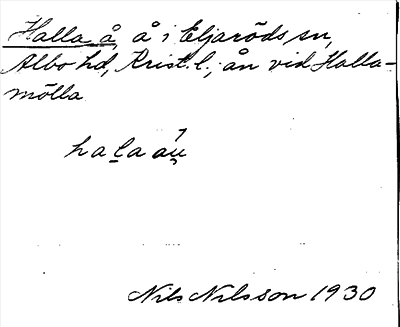 Halla å, å i Eljaröds sn,
Albo hd, Krist. l.; ån vid Halla-
mölla
hala áu
Nils Nilsson 1930